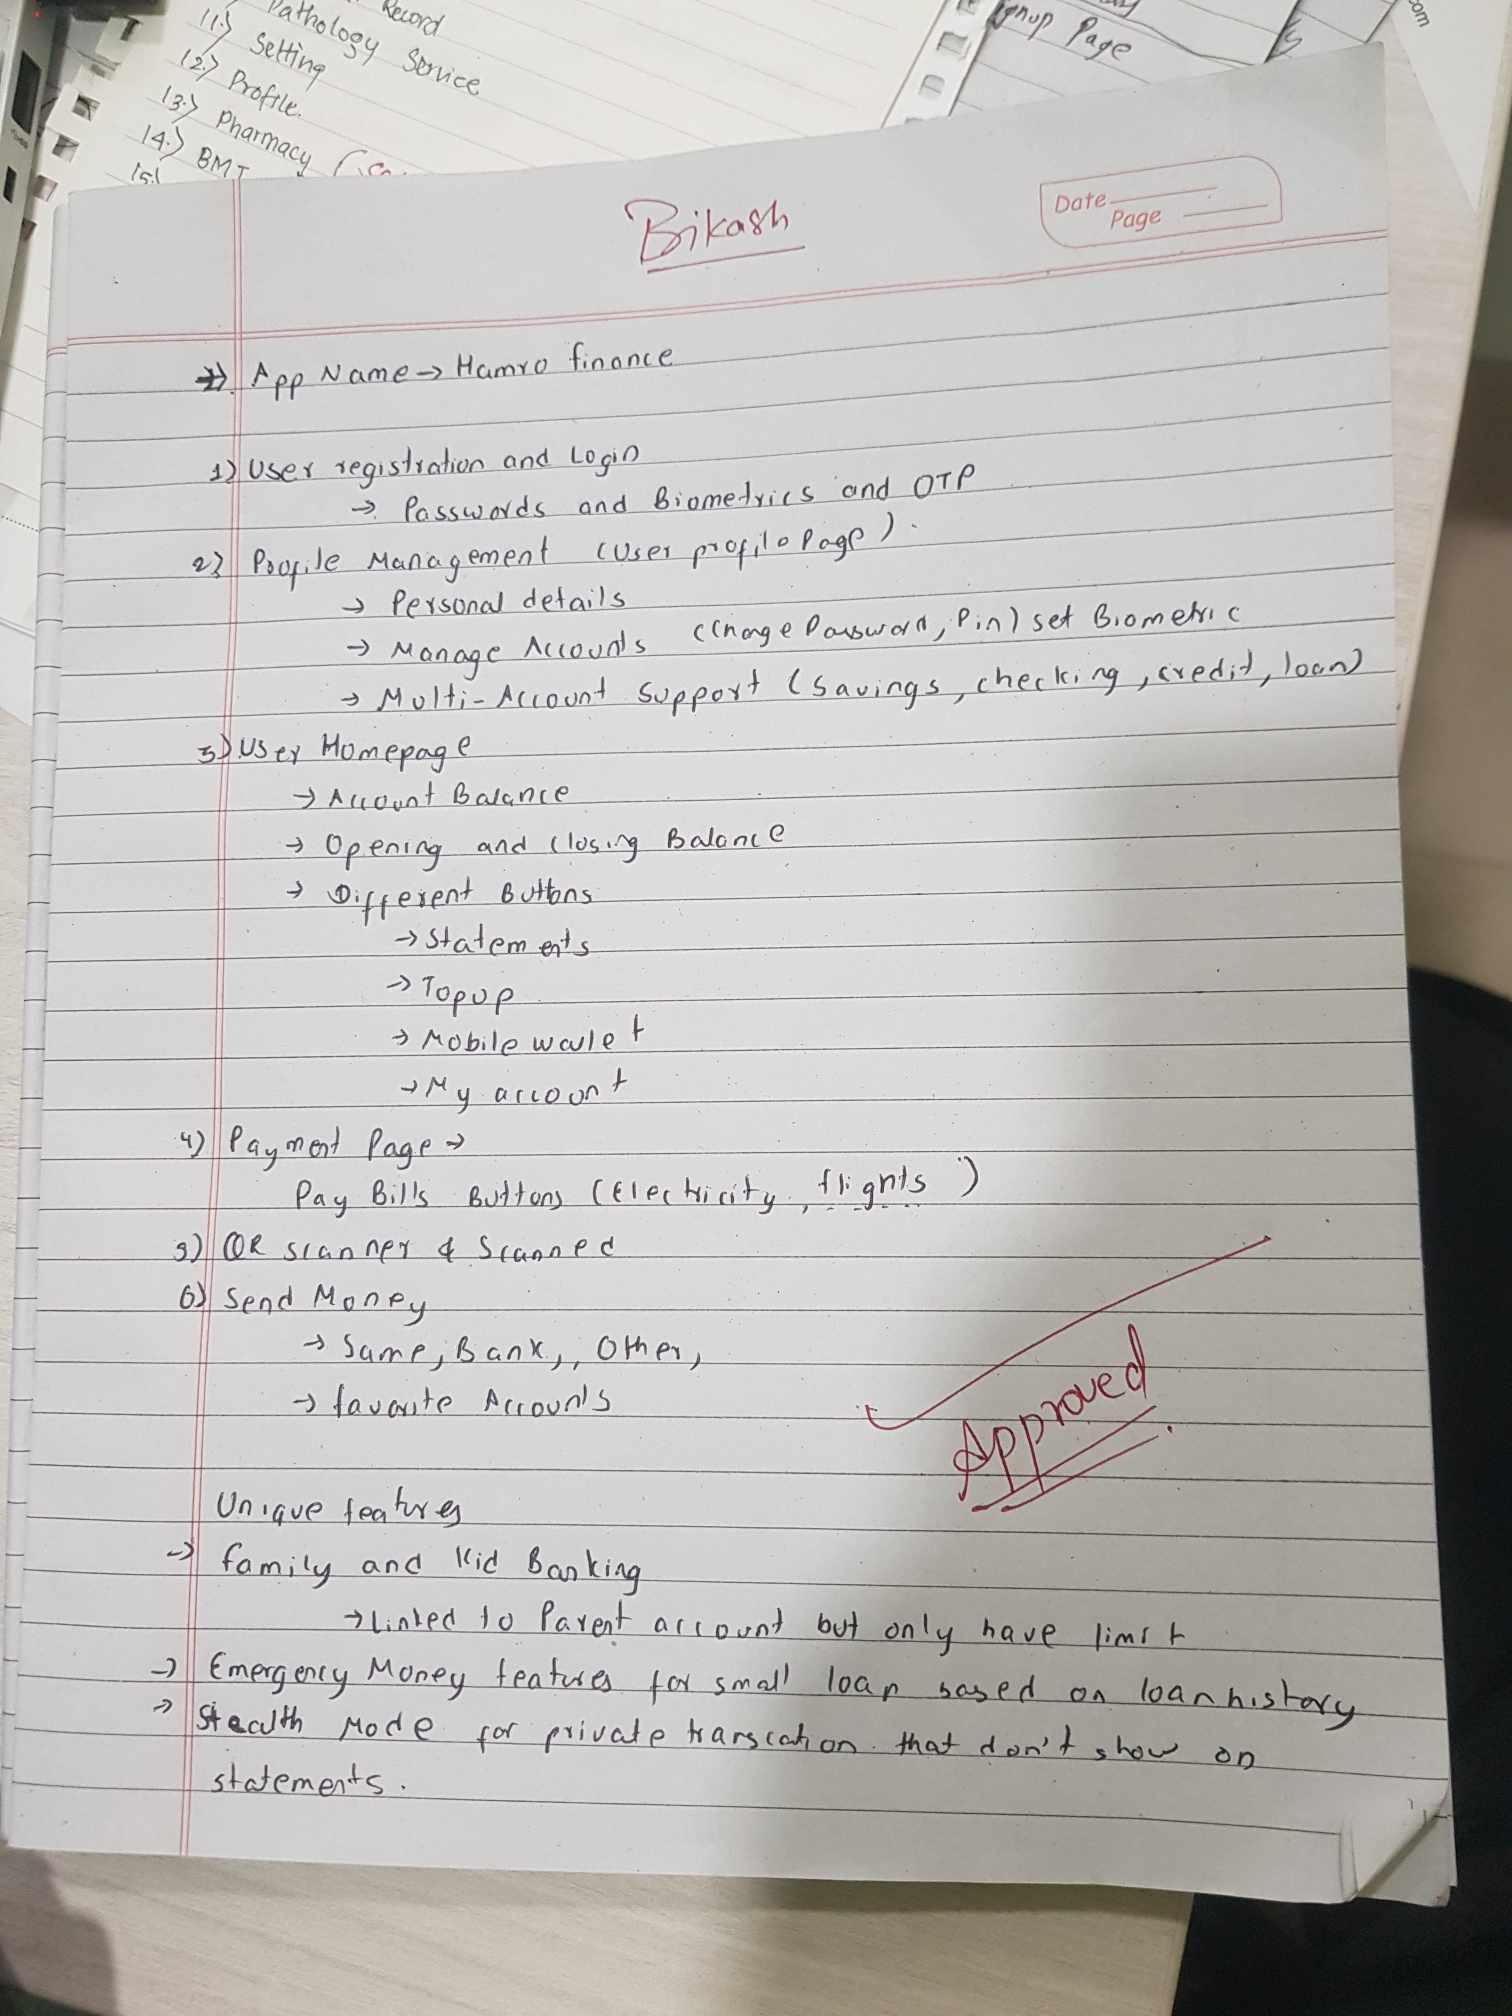 Record
Pathology Service
11.) Setting
12.) Profile.
13.) Pharmacy
14.) BMI
15.)
Signup Page
com
Bikash
Date
Page
App Name → Hamro finance
1) User registration and Login
→ Passwords and Biometrics and OTP
2) Profile Management (User profile Page).
→ Personal details
→ Manage Accounts (Change Password, Pin) set Biometric
→ Multi-Account Support (Savings, checking, credit, loan)
3) User Homepage
→ Account Balance
→ Opening and Closing Balance
→ Different Buttons
→ Statements
→ Topup
→ Mobile walet
→ My account
4) Payment Page →
Pay Bills Buttons (Electricity, flights )
5) QR scanner & Scanned
6) Send Money
→ Same, Bank,, Other,
→ favorite Accounts
Approved
Unique features
→ family and Kid Banking
→ Linked to Parent account but only have limit
→ Emergency Money features for small loan based on loan history
→ Stealth Mode for private transcation that don't show on
statements.